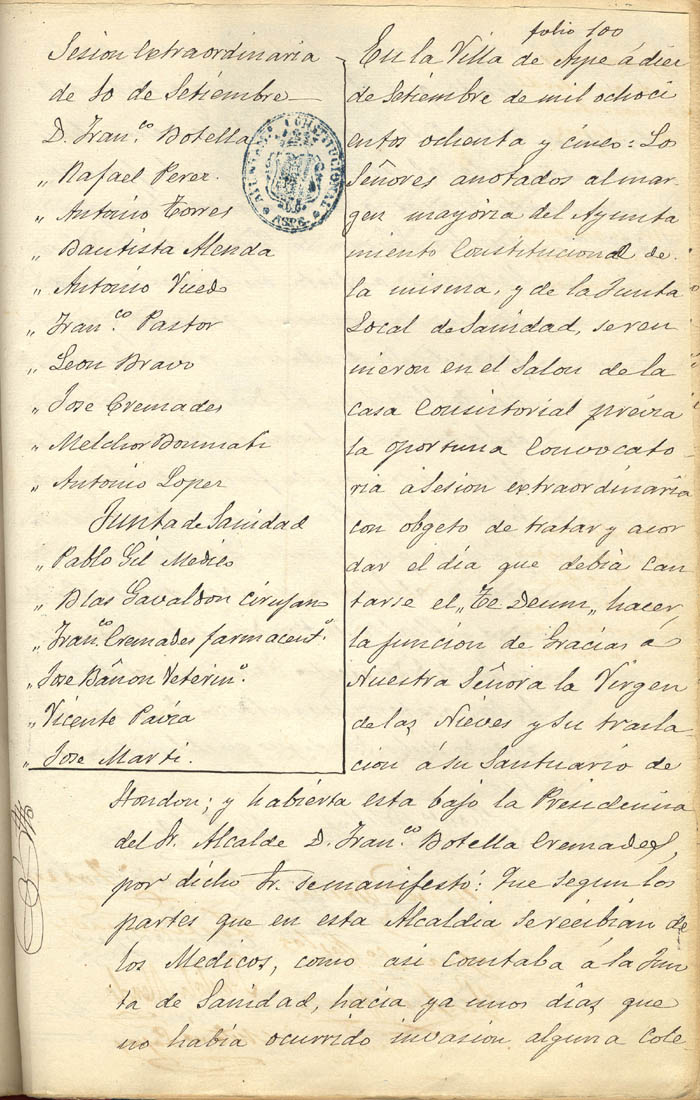 folio 100
Sesion Extraordinaria
de 10 de Setiembre
D. Fran.co Botella
" Rafael Perez.
" Antonio Torres
" Bautista Alenda
" Antonio Vicedo
" Fran.co Pastor
" Leon Bravo
" Jose Cremades
" Melchor Bonmati
" Antonio Lopez
Junta de Sanidad
" Pablo Gil Medico
" Blas Gavaldon Cirujano
" Fran.co Cremades farmaceut.o
" Jose Bañon Veterin.o
" Vicente Pavia
" Jose Marti.
AYUNTAMTO CONSTITUCIONAL
* ASPE *
En la Villa de Aspe á diez
de Setiembre de mil ochoci
entos ochenta y cinco: Los
Señores anotados al mar-
gen mayoria del Ayunta
miento Constitucional de
la misma, y de la Junta
Local de Sanidad, se reu
nieron en el Salon de la
casa Consistorial prévia
la oportuna Convocato-
ria á Sesion extraordinaria
con obgeto de tratar y acor
dar el día que debia can
tarse el „Te Deum„ hacer
la funcion de Gracias á
Nuestra Señora la Virgen
de las Nieves y su trasla
cion á su Santuario de
Hondon; y habierta esta bajo la Presidencia
del Sr. Alcalde D. Fran.co Botella Cremades,
por dicho Sr. se manifestó: Que segun los
partes que en esta Alcaldia se recibian de
los Medicos, como asi constaba á la Jun
ta de Sanidad, hacia ya unos dias que
no habia ocurrido invasion alguna cole